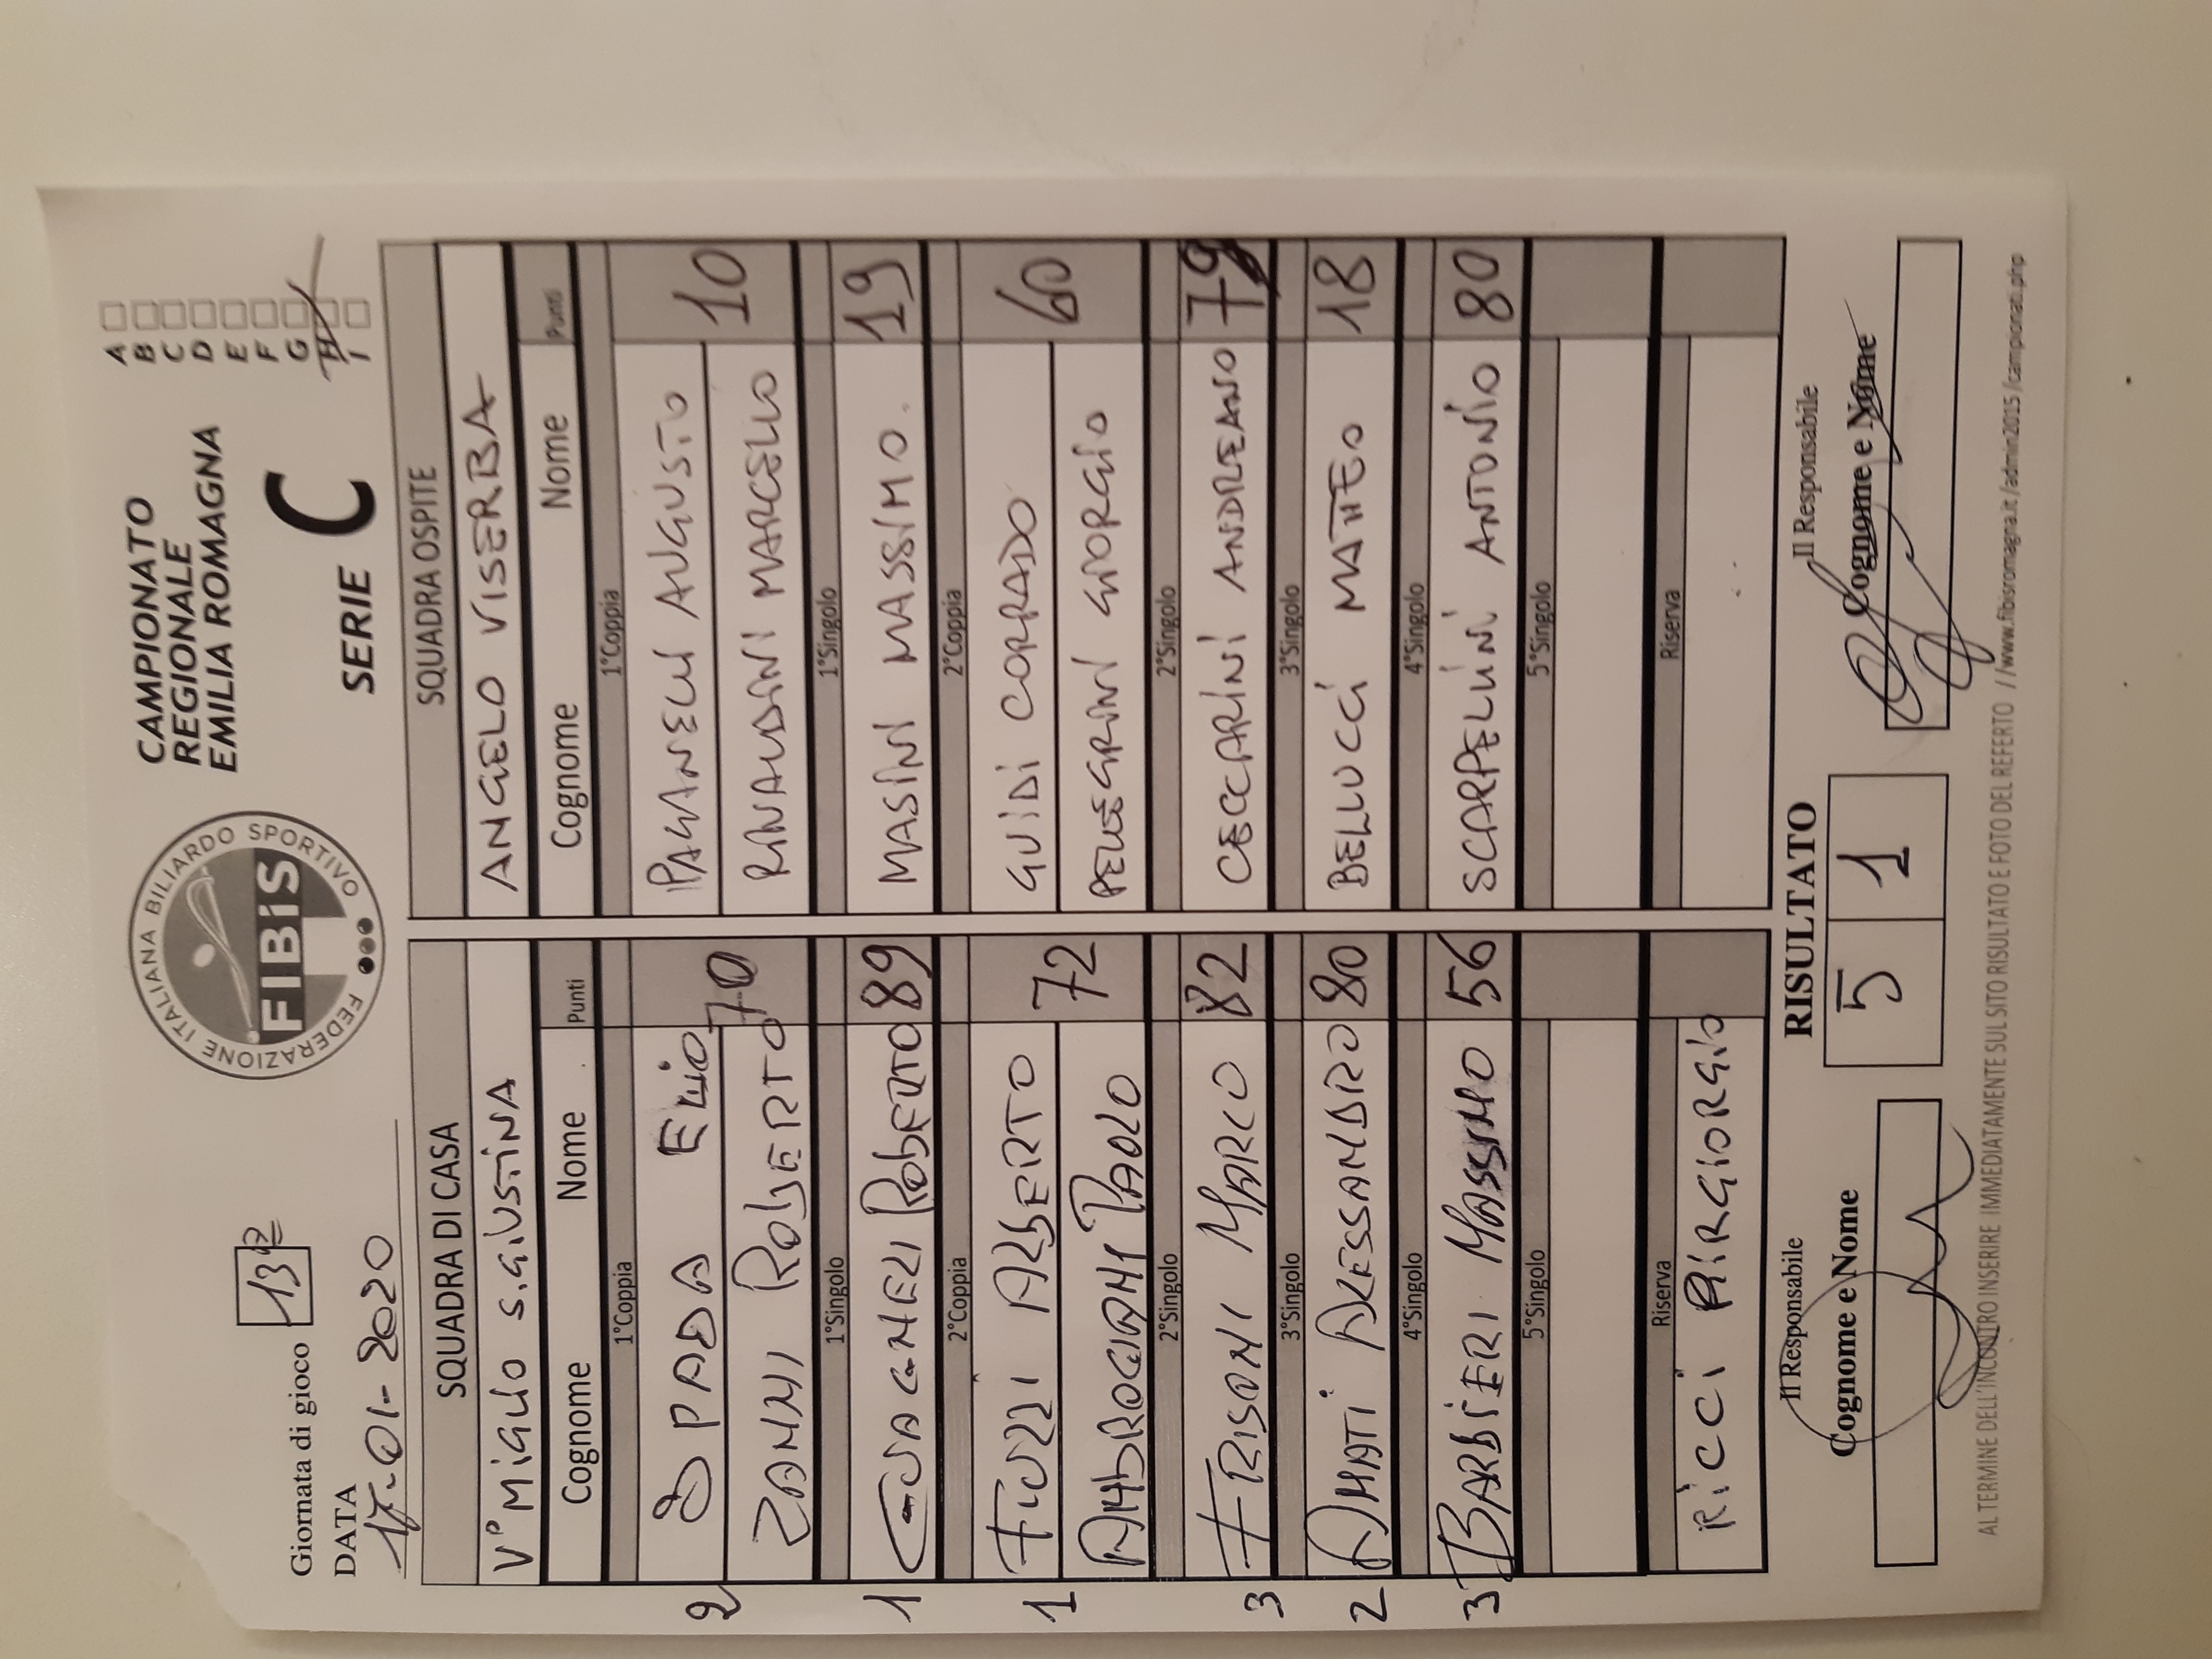 Giornata di gioco 13ª
DATA
17-01-2020
FEDERAZIONE ITALIANA BILIARDO SPORTIVO
FIBIS
CAMPIONATO
REGIONALE
EMILIA ROMAGNA
SERIE C
A
B
C
D
E
F
G
H
I
SQUADRA DI CASA
V° MiGLiO S.GiUSTiNA
Cognome Nome Punti
1°Coppia
2 SPADA ELiO
ZANNI RObERTO 70
1°Singolo
1 GUAGNELI RObERTO 89
2°Coppia
1 FUZZI ALbERTO 72
AMbROGIANI PAOLO
2°Singolo
3 FRISONI MARCO 82
3°Singolo
2 AMATI ALESSANDRO 80
4°Singolo
3 BARbiERI MASSIMO 56
5°Singolo
Riserva
RiCCi PiRGiORGiO
SQUADRA OSPITE
ANGELO VISERBA
Cognome Nome Punti
1°Coppia
PAGANELLI AUGUSTO 10
RINALDINI MARCELLO
1°Singolo
MASINI MASSIMO. 19
2°Coppia
GUIDI CORRADO 60
PELLEGRINI GIORGIO
2°Singolo
CECCARINI ANDREANO 79
3°Singolo
BELLUCCI MATTEO 18
4°Singolo
SCARPELLINI ANTONIO 80
5°Singolo
Riserva
Il Responsabile
Cognome e Nome
RISULTATO
5 1
Il Responsabile
Cognome e Nome
AL TERMINE DELL'INCONTRO INSERIRE IMMEDIATAMENTE SUL SITO RISULTATO E FOTO DEL REFERTO //www.fibisromagna.it/admin2015/campionati.php